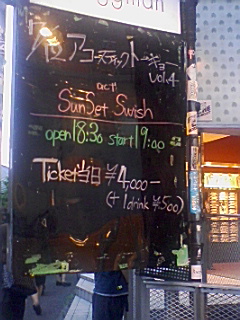 eggman
アコースティック
ショー
vol.4
act
SunSet Swish
open 18:30 start 19:00
Ticket当日 ¥4,000-
(+1drink ¥500)